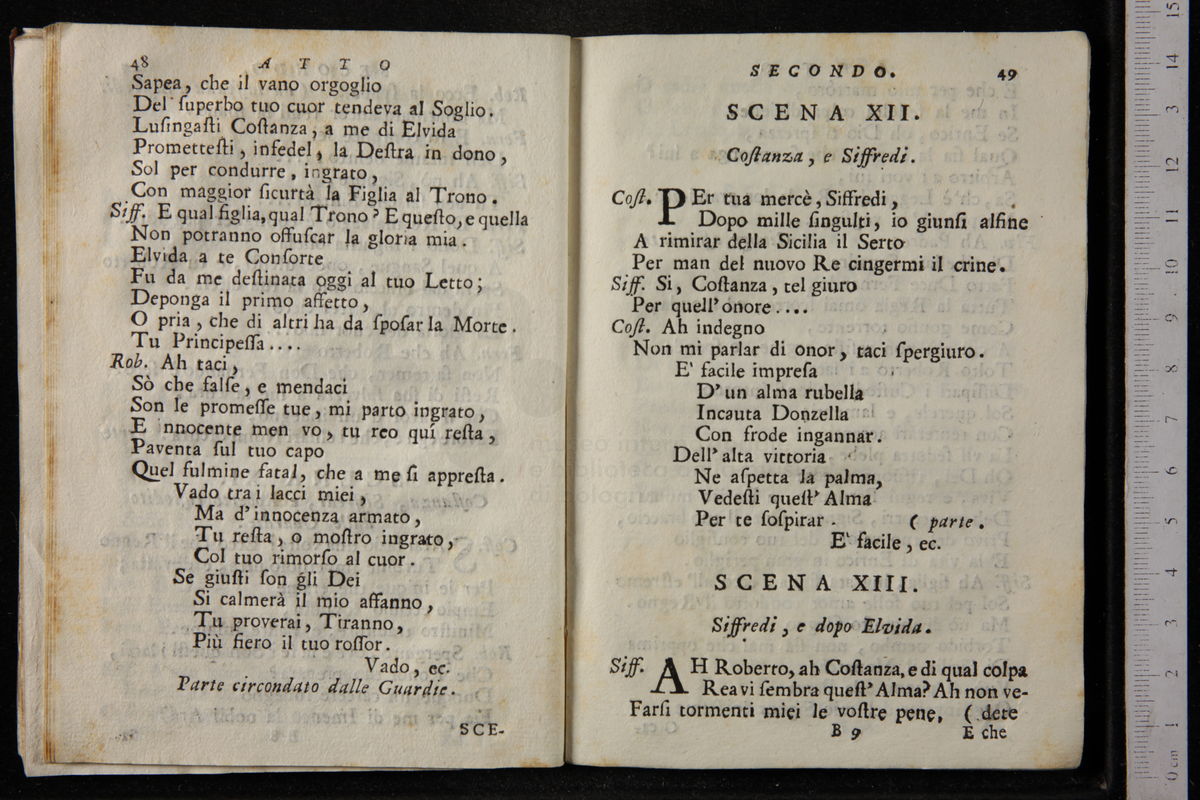 48
ATTO
Sapea, che il vano orgoglio
Del ſuperbo tuo cuor tendeva al Soglio.
Luſingaſti Coſtanza, a me di Elvida
Prometteſti, infedel, la Deſtra in dono,
Sol per condurre, ingrato,
Con maggior ſicurtà la Figlia al Trono.
Siff. E qual figlia, qual Trono? E queſto, e quella
Non potranno offuſcar la gloria mia.
Elvida a te Conſorte
Fu da me deſtinata oggi al tuo Letto;
Deponga il primo affetto,
O pria, che di altri ha da ſpoſar la Morte.
Tu Principeſſa....
Rob. Ah taci,
Sò che falſe, e mendaci
Son le promeſſe tue, mi parto ingrato,
E innocente men vo, tu reo quí reſta,
Paventa ſul tuo capo
Quel fulmine fatal, che a me ſi appreſta.
Vado tra i lacci miei,
Ma d'innocenza armato,
Tu reſta, o moſtro ingrato,
Col tuo rimorſo al cuor.
Se giuſti ſon gli Dei
Si calmerà il mio affanno,
Tu proverai, Tiranno,
Più fiero il tuo roſſor.
Vado, ec.
Parte circondato dalle Guardie.
SCE-
SECONDO.
49
SCENA XII.
Coſtanza, e Siffredi.
Coſt. PEr tua mercè, Siffredi,
Dopo mille ſingulti, io giunſi alfine
A rimirar della Sicilia il Serto
Per man del nuovo Re cingermi il crine.
Siff. Si, Coſtanza, tel giuro
Per quell'onore....
Coſt. Ah indegno
Non mi parlar di onor, taci ſpergiuro.
E' facile impreſa
D'un alma rubella
Incauta Donzella
Con frode ingannar.
Dell'alta vittoria
Ne aſpetta la palma,
Vedeſti queſt'Alma
Per te ſoſpirar. (parte.
E' facile, ec.
SCENA XIII.
Siffredi, e dopo Elvida.
Siff. AH Roberto, ah Coſtanza, e di qual colpa
Rea vi ſembra queſt'Alma? Ah non ve-
Farſi tormenti miei le voſtre pene, (dete
B 9
E che